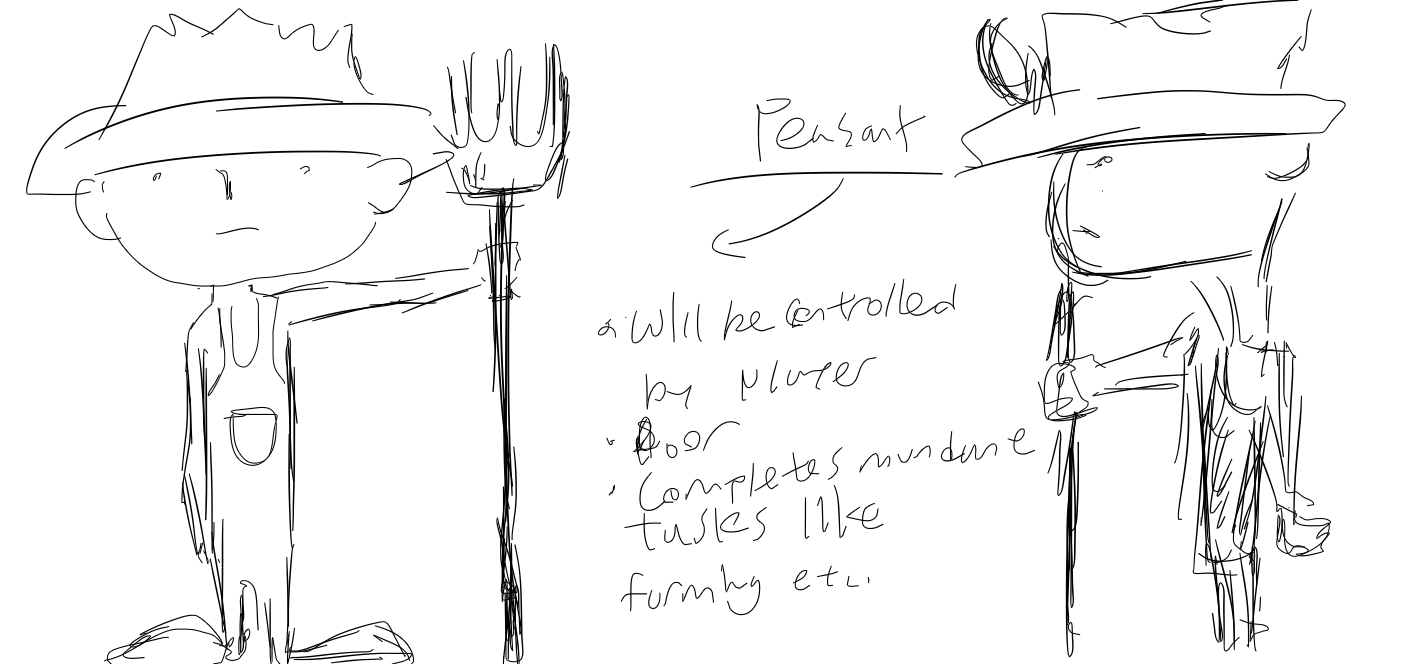 Peasant
• Will be controlled
by Player
• Poor
• Completes mundane
tasks like
farming etc.